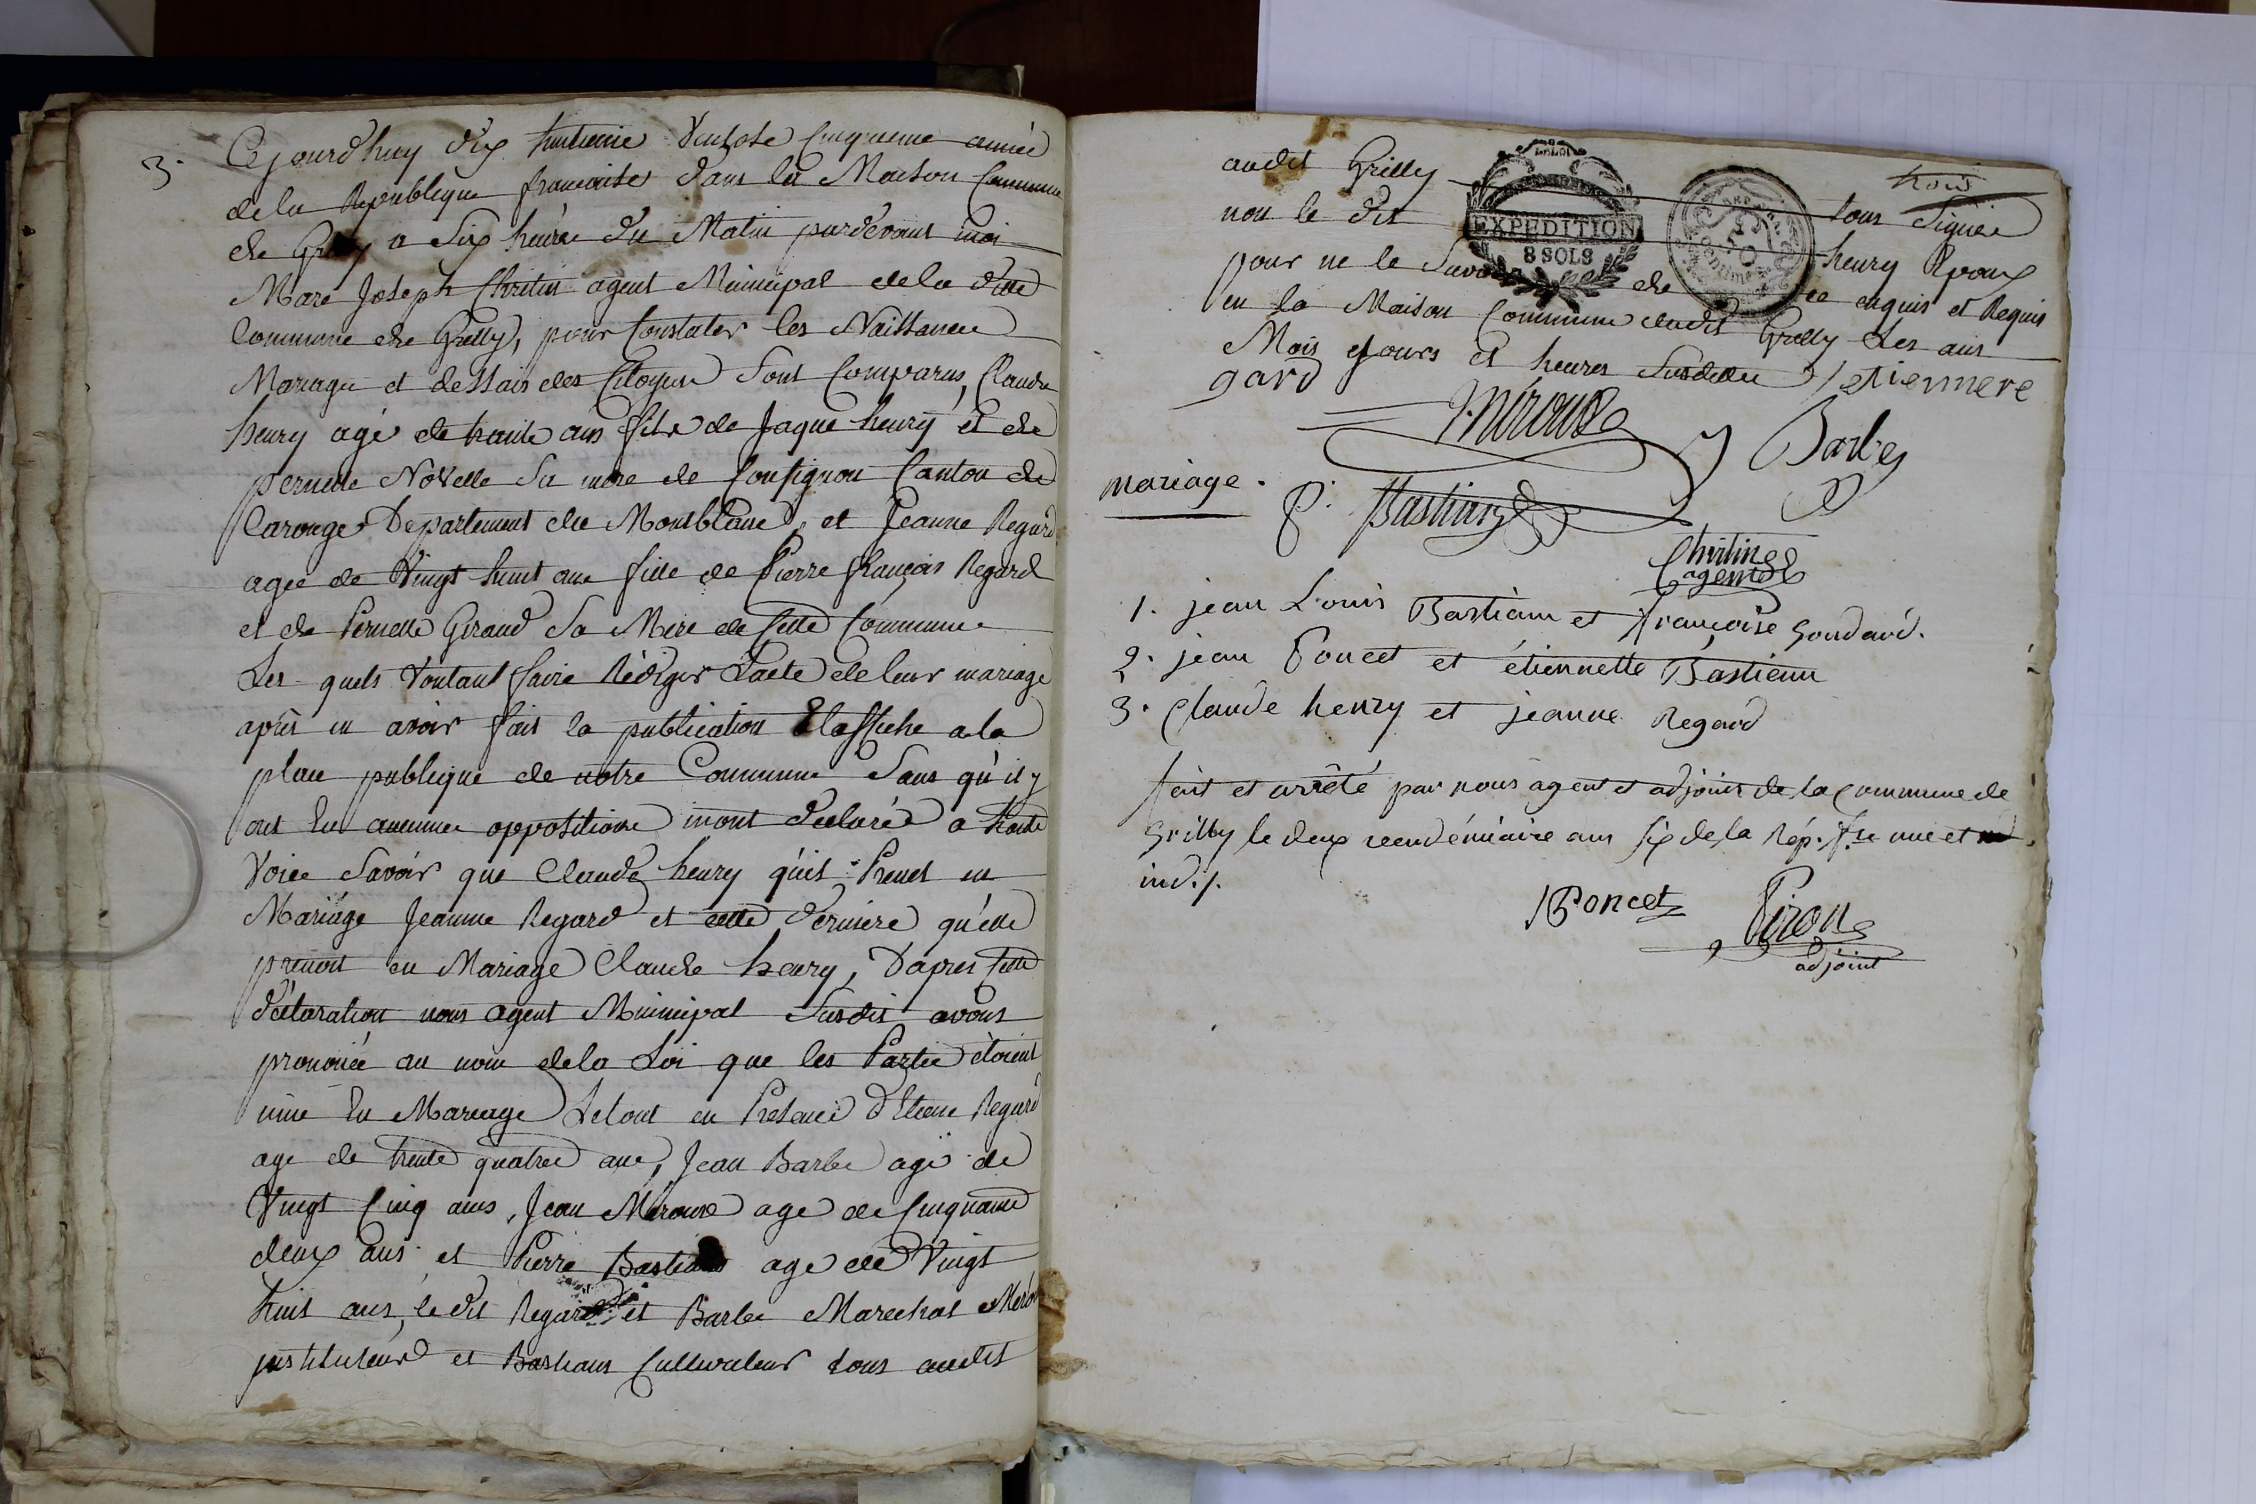 3.
Cejourdhuy dix huitieme Ventose Cinquieme année
dela Republique francaise dans la Maison Commune
de Grilly a Six heure du Matin pardevant moi
Marc Joseph Chritin agent Municipal dela ditte
Commune de Grilly, pour Constater les Naissance
Mariage et dessais des Citoyens Sont Comparus, Claude
henry agé de trante ans fils de Jaque henry et de
pernette Novelle Sa mere de Confignon Canton de
Carouge Departement du Montblanc, et Jeanne Regard
agee de Vingt huit ans fille de Pierre françois Regard
et de Pernette Giraud Sa Mere de Cette Commune
Les quels Voulant faire Rédiger Lacte de leur mariage
après en avoir fait la publication Elaffiche a la
place publique de notre Commune Sans qu'il y
ait Eu aucune opposition mont déclaré a haute
Voice Savoir que Claude henry qu'il Prenet en
Mariage Jeanne Regard et cette derniere qu'elle
prenoit en Mariage Claude henry, Dapres Cette
déclaration nous agent Municipal Susdit avons
prononcé au nom dela Loi que les Partie étoient
unie En Mariage Letout en Presence dEtiene Regard
age de trente quatre ans, Jean Barbe agé de
Vingt Cinq ans, Jean Méroux age de Cinquante
deux ans et Pierre Bastians age de Vingt
huit ans, le dit Regard et Barbe Marechal Mérou
justituteur et Bastians Cultivateur tous audit
trois
audit Grilly tous Signée
non le dit henry Epoux
pour ne le Savoir de ce enquis et Requis
en la Maison Commune dudit Grilly Les ans
Mois Jours et heures Susdittes / etiennere
gard
LA LOI
EXPEDITION
8 SOLS
Méroux
Barbe
mariage.
P. Bastians
Chritin
agent
1. jean Louis Bastiam et françoise Goudard.
2. jean Poncet et étiennette Bastiam
3. Claude henry et jeanne Regard
fait et arrêté par nous agent et adjoint de la commune de
Grilly le deux vendémiaire ans six de la Rép. fse une et
ind./.
JPoncet
Piron
adjoint